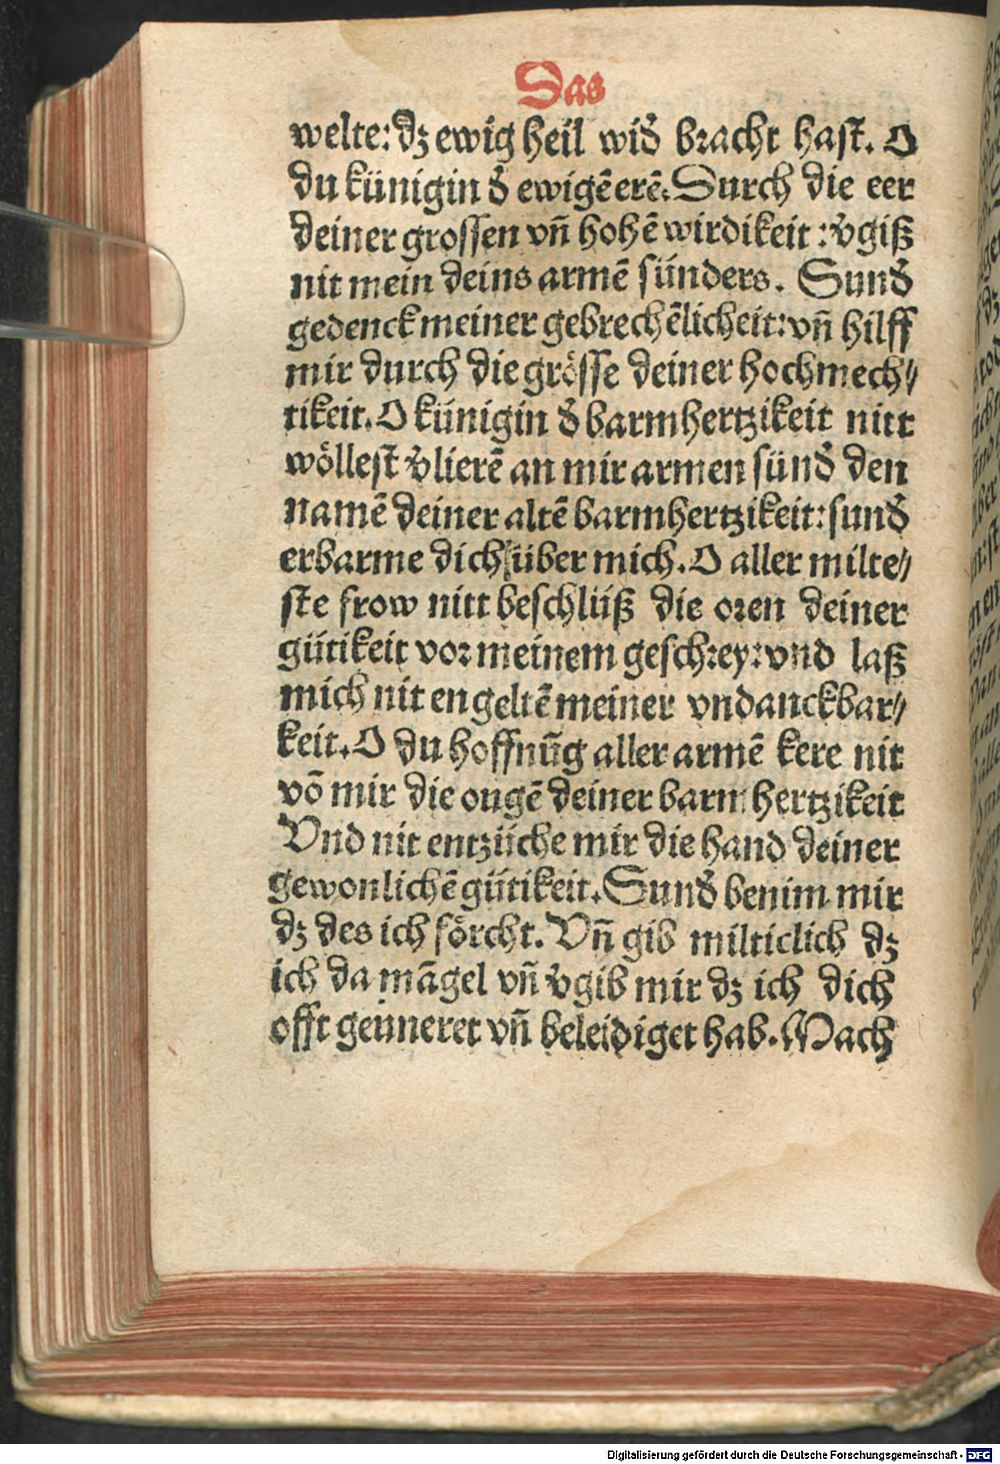 Das
welte: dz ewig heil wid̄ bracht hast. O
du künigin d̄ ewigē erē. Durch die eer
deiner grossen vn̄ hohē wirdikeit: v̄giß
nit mein deins armē sünders. Sund̄
gedenck meiner gebrechēlicheit: vn̄ hilff
mir durch die grösse deiner hochmech⸗
tikeit. O künigin d̄ barmhertzikeit nitt
wöllest v̄lierē an mir armen sünd̄ den
namē deiner altē barmhertzikeit: sund̄
erbarme dich über mich. O aller milte⸗
ste frow nitt beschlüß die oren deiner
gütikeit vor meinem geschrey: vnd laß
mich nit engeltē meiner vndanckbar⸗
keit. O du hoffnūg aller armē kere nit
vō mir die ougē deiner barmhertzikeit
Vnd nit entzüche mir die hand deiner
gewonlichē gütikeit. Sund̄ benim mir
dz des ich förcht. Vn̄ gib milticlich dz
ich da māgel vn̄ v̄gib mir dz ich dich
offt geunneret vn̄ beleidiget hab. Mach
Digitalisierung gefördert durch die Deutsche Forschungsgemeinschaft - DFG